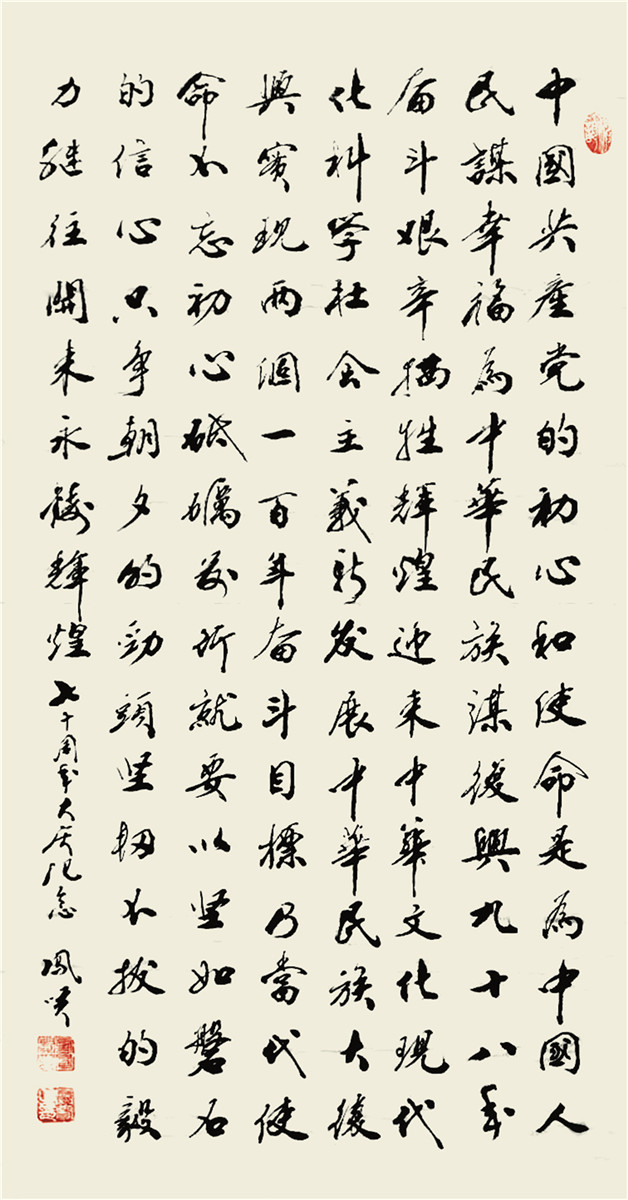 中國共產党的初心和使命是為中國人
民謀幸福為中華民族謀復興九十八年
奋斗艰辛牺牲輝煌迎来中華文化現代
化科学社会主義新发展中華民族大復
興實現两個一百年奋斗目標乃當代使
命不忘初心砥礪前行就要以坚如磐石
的信心只争朝夕的勁頭坚韧不拔的毅
力继往開来永铸輝煌
七十周年大庆纪念 鳳